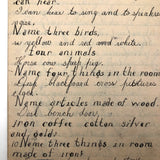 can hear.
I can hear to sing and to speak
nose.
Name three birds,
a yellow and red and white.
four animals
Horse cow sheep pig.
Name four things in the room
black board stove pictures
Name articles made of wood.
bench door
iron coffee cotton silver
and gold.
Name three things in room
made of iron